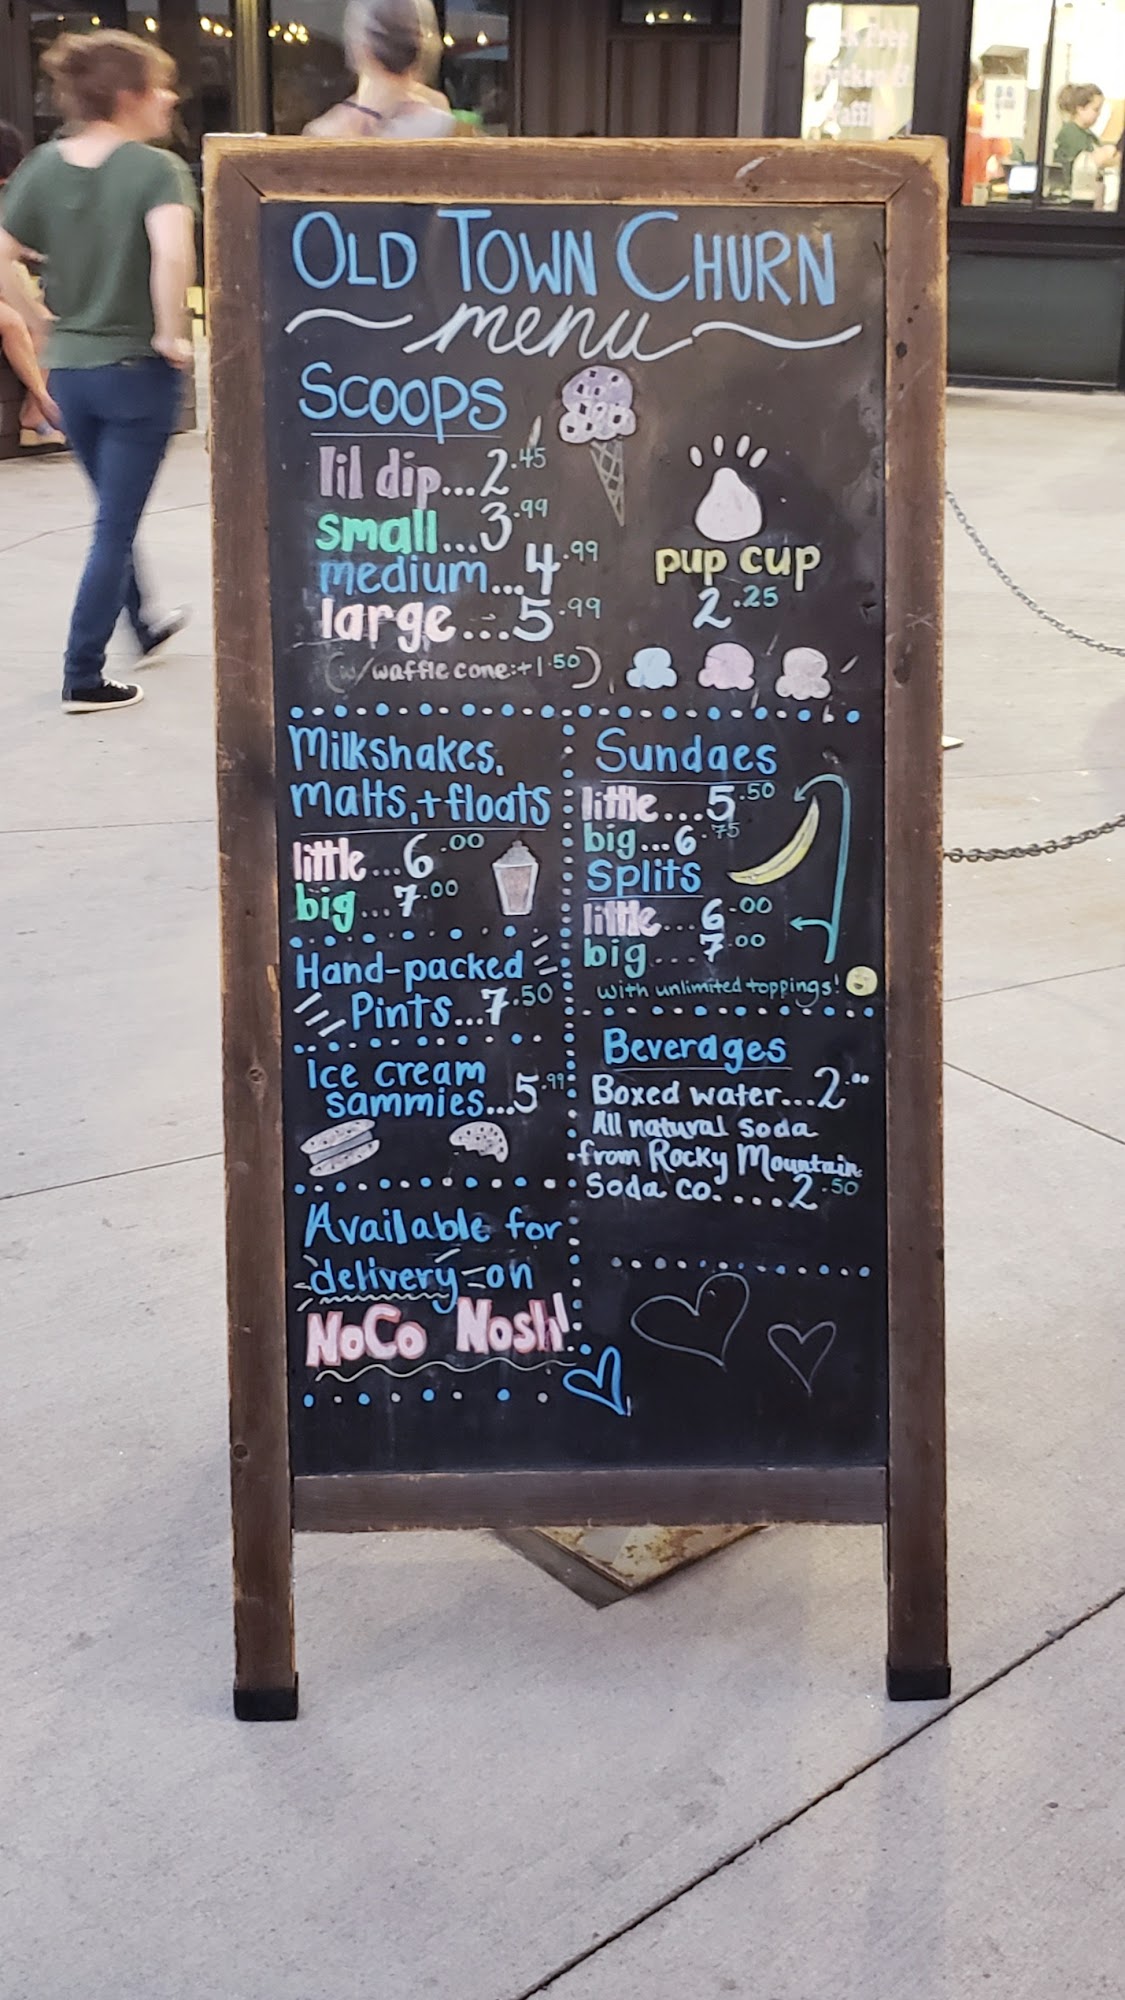 OLD TOWN CHURN
menu
SCOOPS
lil dip...2.45
small...3.99
medium...4.99
large...5.99
(w/ waffle cone:+1.50)
pup cup
2.25
Milkshakes,
malts,+floats
little...6.00
big...7.00
Hand-packed
Pints...7.50
Ice cream
sammies...5.99
Available for
delivery on
NoCo Nosh!
Sundaes
little...5.50
big...6.75
Splits
little...6.00
big....7.00
with unlimited toppings!
Beverages
Boxed water...2.00
All natural soda
from Rocky Mountain
Soda co.....2.50